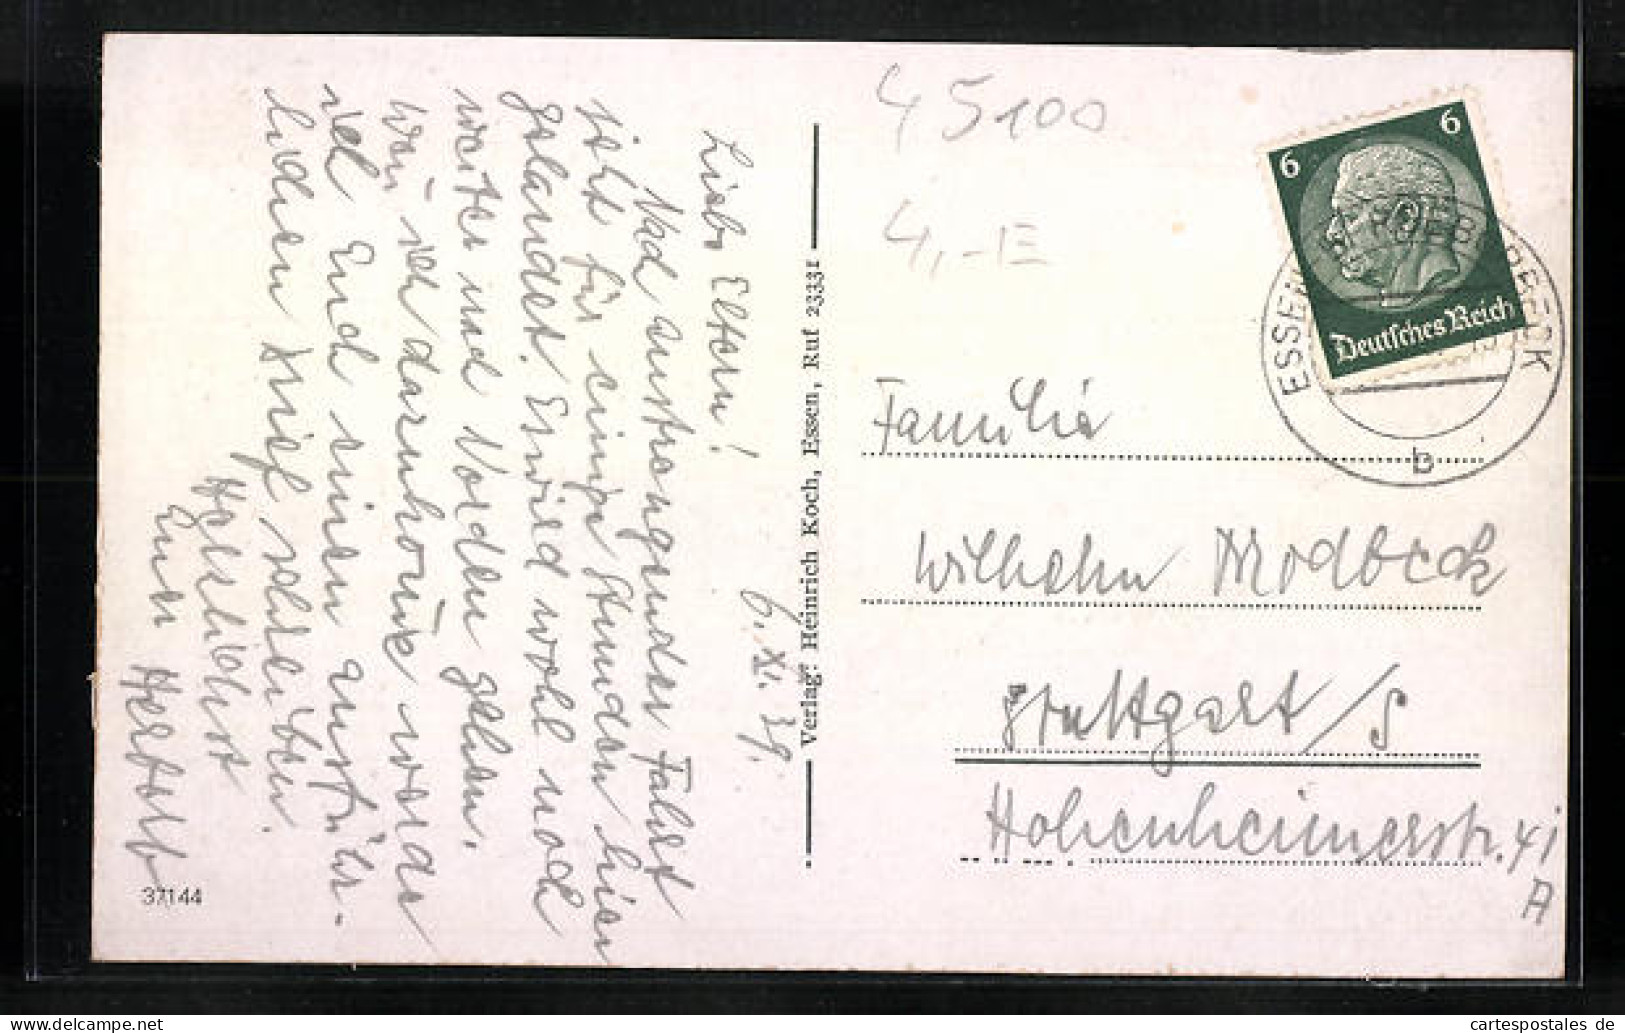 Liebe Eltern!
6. XI. 39.
Nach anstrengender Fahrt
jetzt für einige Stunden hier
gelandet. Es wird wohl noch
weiter nach Norden gehen.
Wenn ich dazukomme werde
ich Euch einen ausführ-
lichen Brief schreiben.
Herzlichst
Euer Herbert
37144
Verlag: Heinrich Koch, Essen, Ruf 23331
45100
4,-E
6
6
Deutsches Reich
ESSEN
b
Familie
Wilhelm Modbeck
Stuttgart/S
Hohenheimerstr. 41
A
cartespostales de